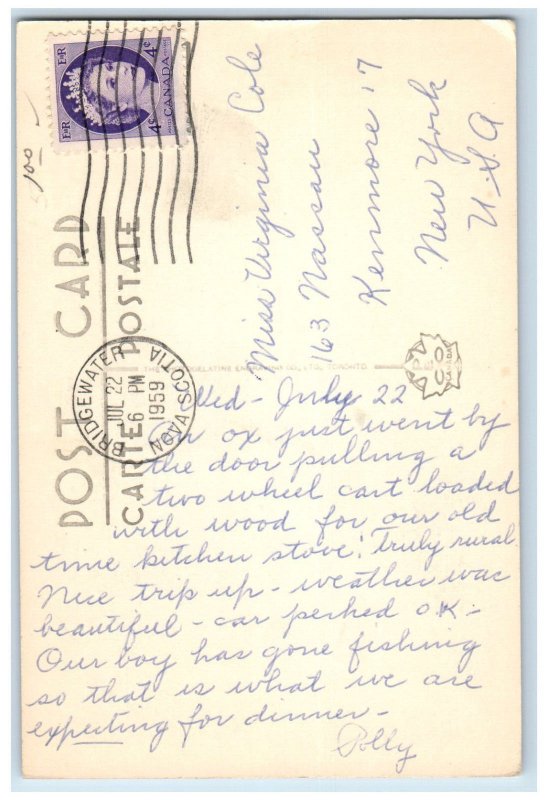 E II R
4¢
CANADA
4¢
E II R
100
POST CARD
CARTE POSTALE
BRIDGEWATER
JUL 22
6 PM
1959
NOVA SCOTIA
Miss Virginia Cole
163 Nassau
Kenmore 17
New York
U.S.A
THE ENGRAVING CO., LTD., TORONTO.
PECO
CANADA
Wed - July 22
An ox just went by
the door pulling a
two wheel cart loaded
with wood for our old
time kitchen stove! Truly rural
Nice trip up - weather was
beautiful - car perked O.K. -
Our boy has gone fishing
so that is what we are
expecting for dinner -
Polly